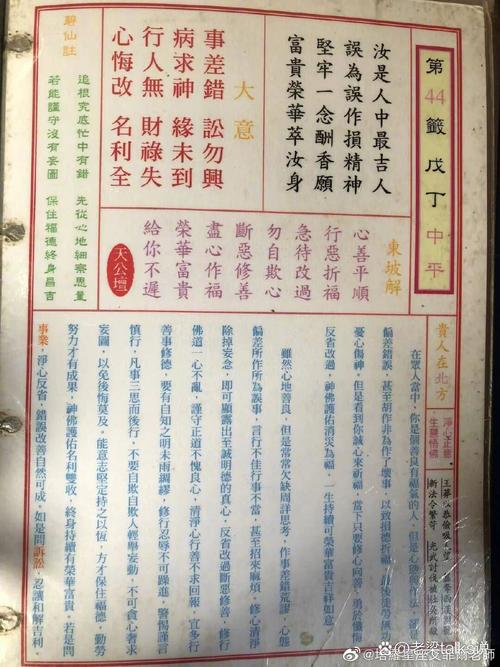 第44籤 戊丁 中平
汝是人中最吉人
誤為誤作損精神
堅牢一念酬香願
富貴榮華萃汝身
大意
事差錯 訟勿興
病求神 緣未到
行人無 財祿失
心悔改 名利全
碧仙註
追根究底忙中有錯 先從心地細察思量
若能謹守沒有妄圖 保住福德終身昌吉
東坡解
心善平順
行惡折福
急待改過
勿自欺心
斷惡修善
盡心作福
榮華富貴
給你不遲
天公壇
貴人在北方
淨心正意
生靈悟佛
王莽以恭儉吸
新法令繁苛 光武討伐被杜吳所
在眾人當中,你是個善良有福氣的人,但是心
偏差錯誤,甚至胡作非為作了壞事,以致損德折福,
憂心傷神,但是看到你誠心來祈福,當下只要修心向善,勇於懺悔
反省改過,神佛護佑消災為福,一生持續可榮華富貴吉祥如意。
雖然心地善良,但是常常欠缺周詳思考,作事差錯荒謬,心態
偏差所作所為誤事,言行不佳行事不當,甚至招來麻煩,修心清淨
除掉妄念,即可顯露出至誠明德的真心,反省改過斷惡修善,
佛道一心不亂,謹守正道不愧良心,清淨心行善不求回報,宜多行
善事修德,要有自知之明未雨綢繆,修行忍辱不可躁進,警惕謹言
慎行,凡事三思而後行,不要自欺自欺人輕舉妄動,不可貪心奢求
妄圖,以免後悔莫及。能意志堅定持之以恆,方才保住福德,勤勞
努力才有成果,神佛護佑名利雙收,終身持續有榮華富貴。若是問
事業,淨心反省,錯誤改善自然可成。如是問訴訟,忍讓和解吉利。
头条 @老梁talk乱谭